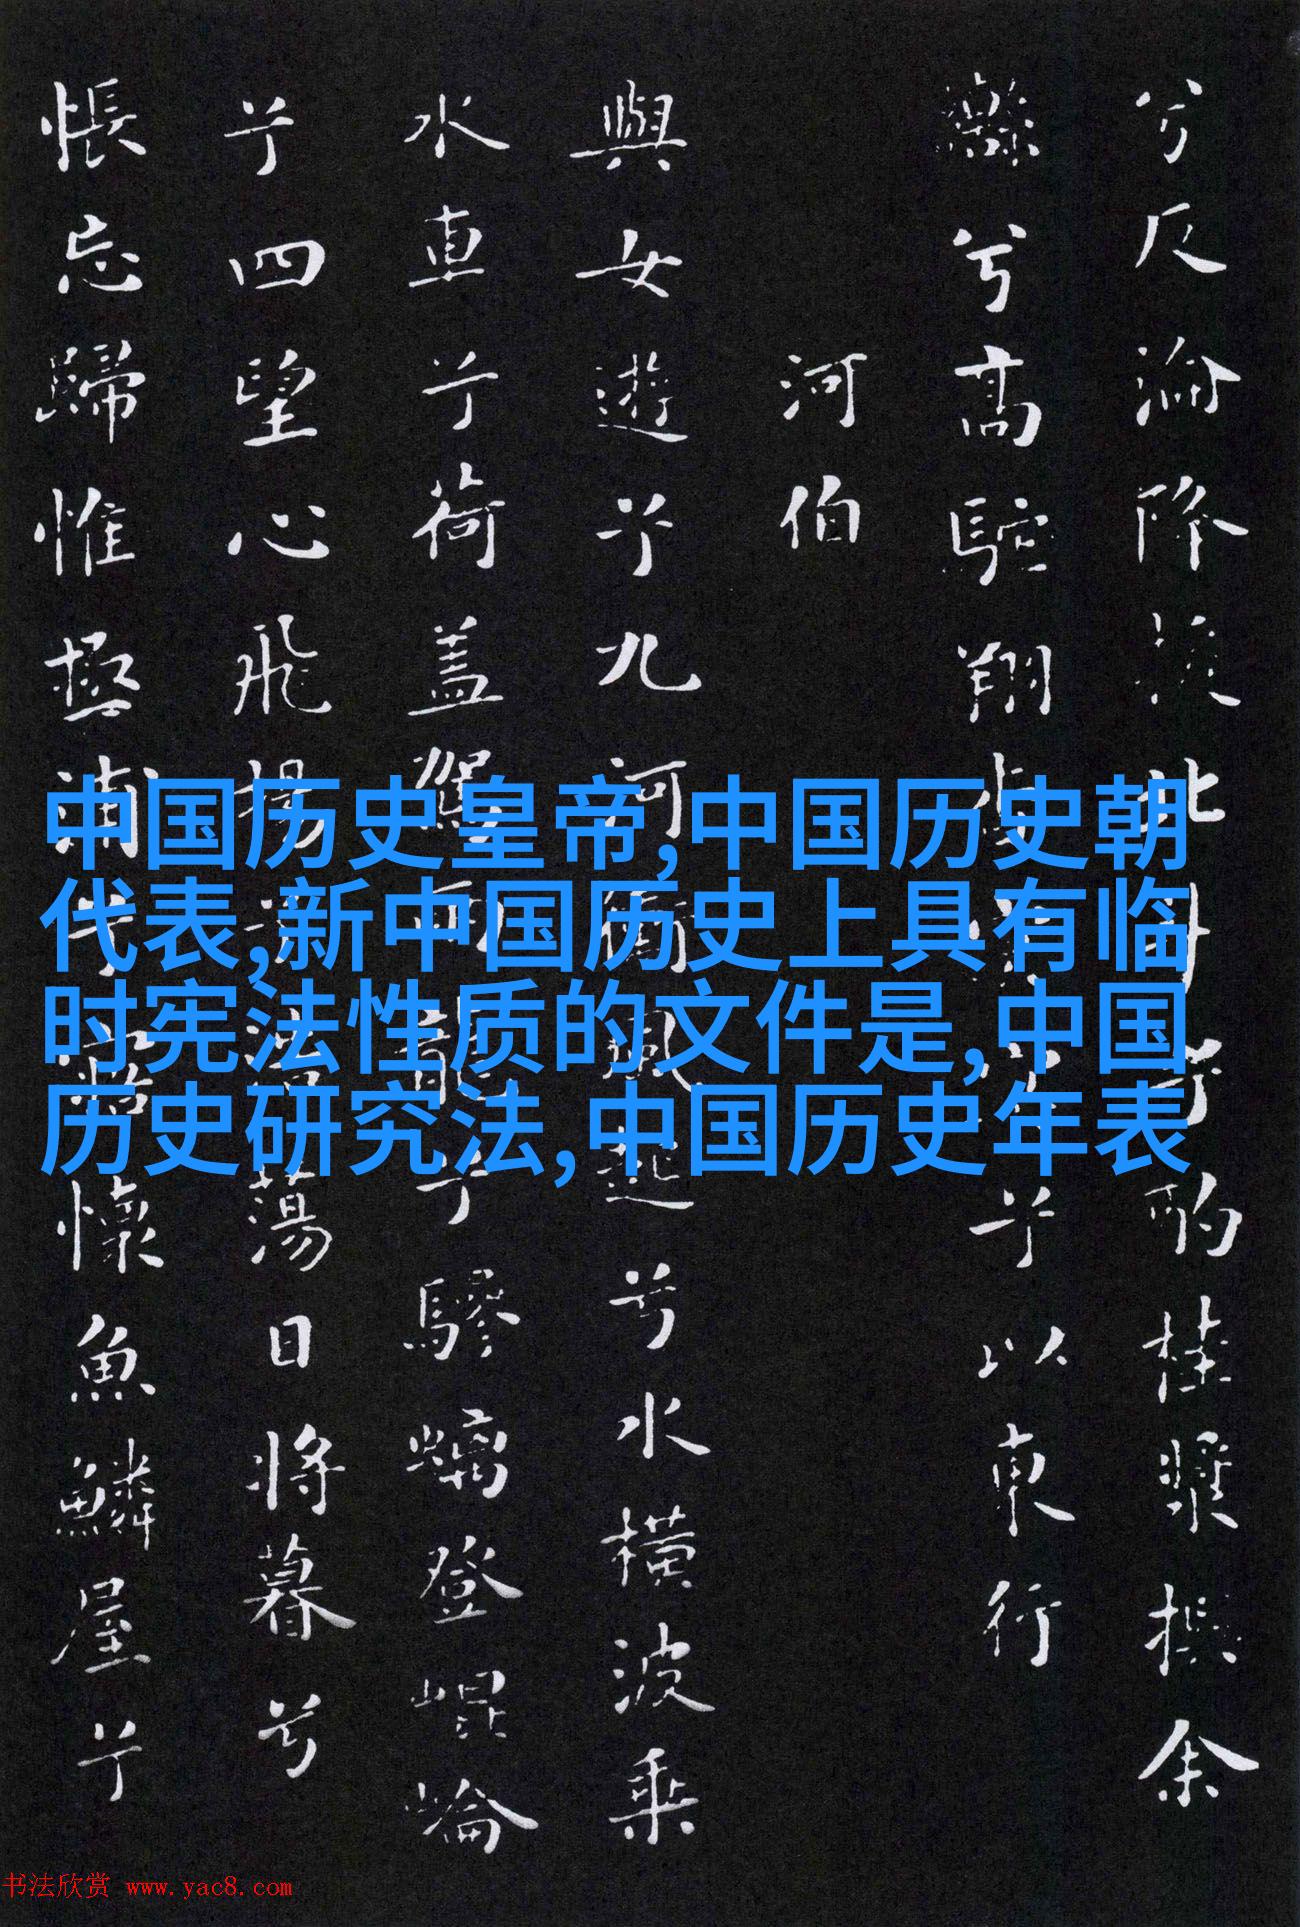 兮反淪降援北斗兮酌桂漿撰余
轡兮高駝翔兮以東行
河伯
與女遊兮九河衝風起兮水橫波乘
水車兮荷蓋駕兩龍兮驂螭登崐崘
兮四望心飛揚兮浩蕩日將暮兮
悵忘歸惟極浦兮寤懷魚鱗屋兮
中国历史皇帝,中国历史朝
代表,新中国历史上具有临
时宪法性质的文件是,中国
历史研究法,中国历史年表
书法欣赏 www.yac8.com